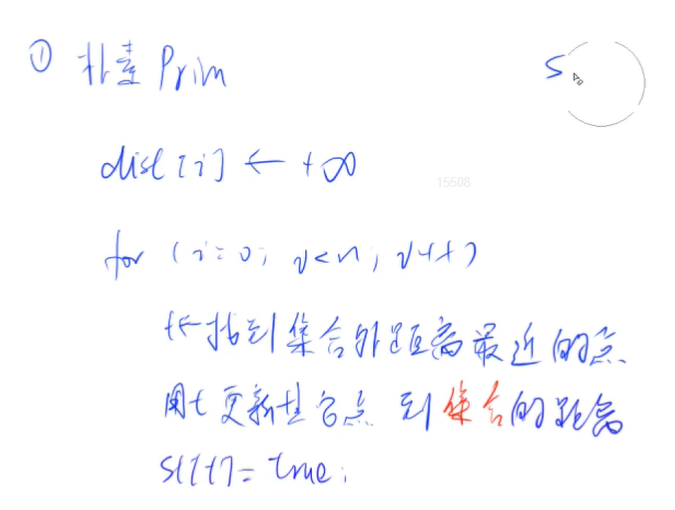 ① 朴素Prim
S
dist[i] ← +∞
15508
for (i=0; i<n; i++)
t←找到集合外距离最近的点
用t更新其它点到集合的距离
st[t]=true;